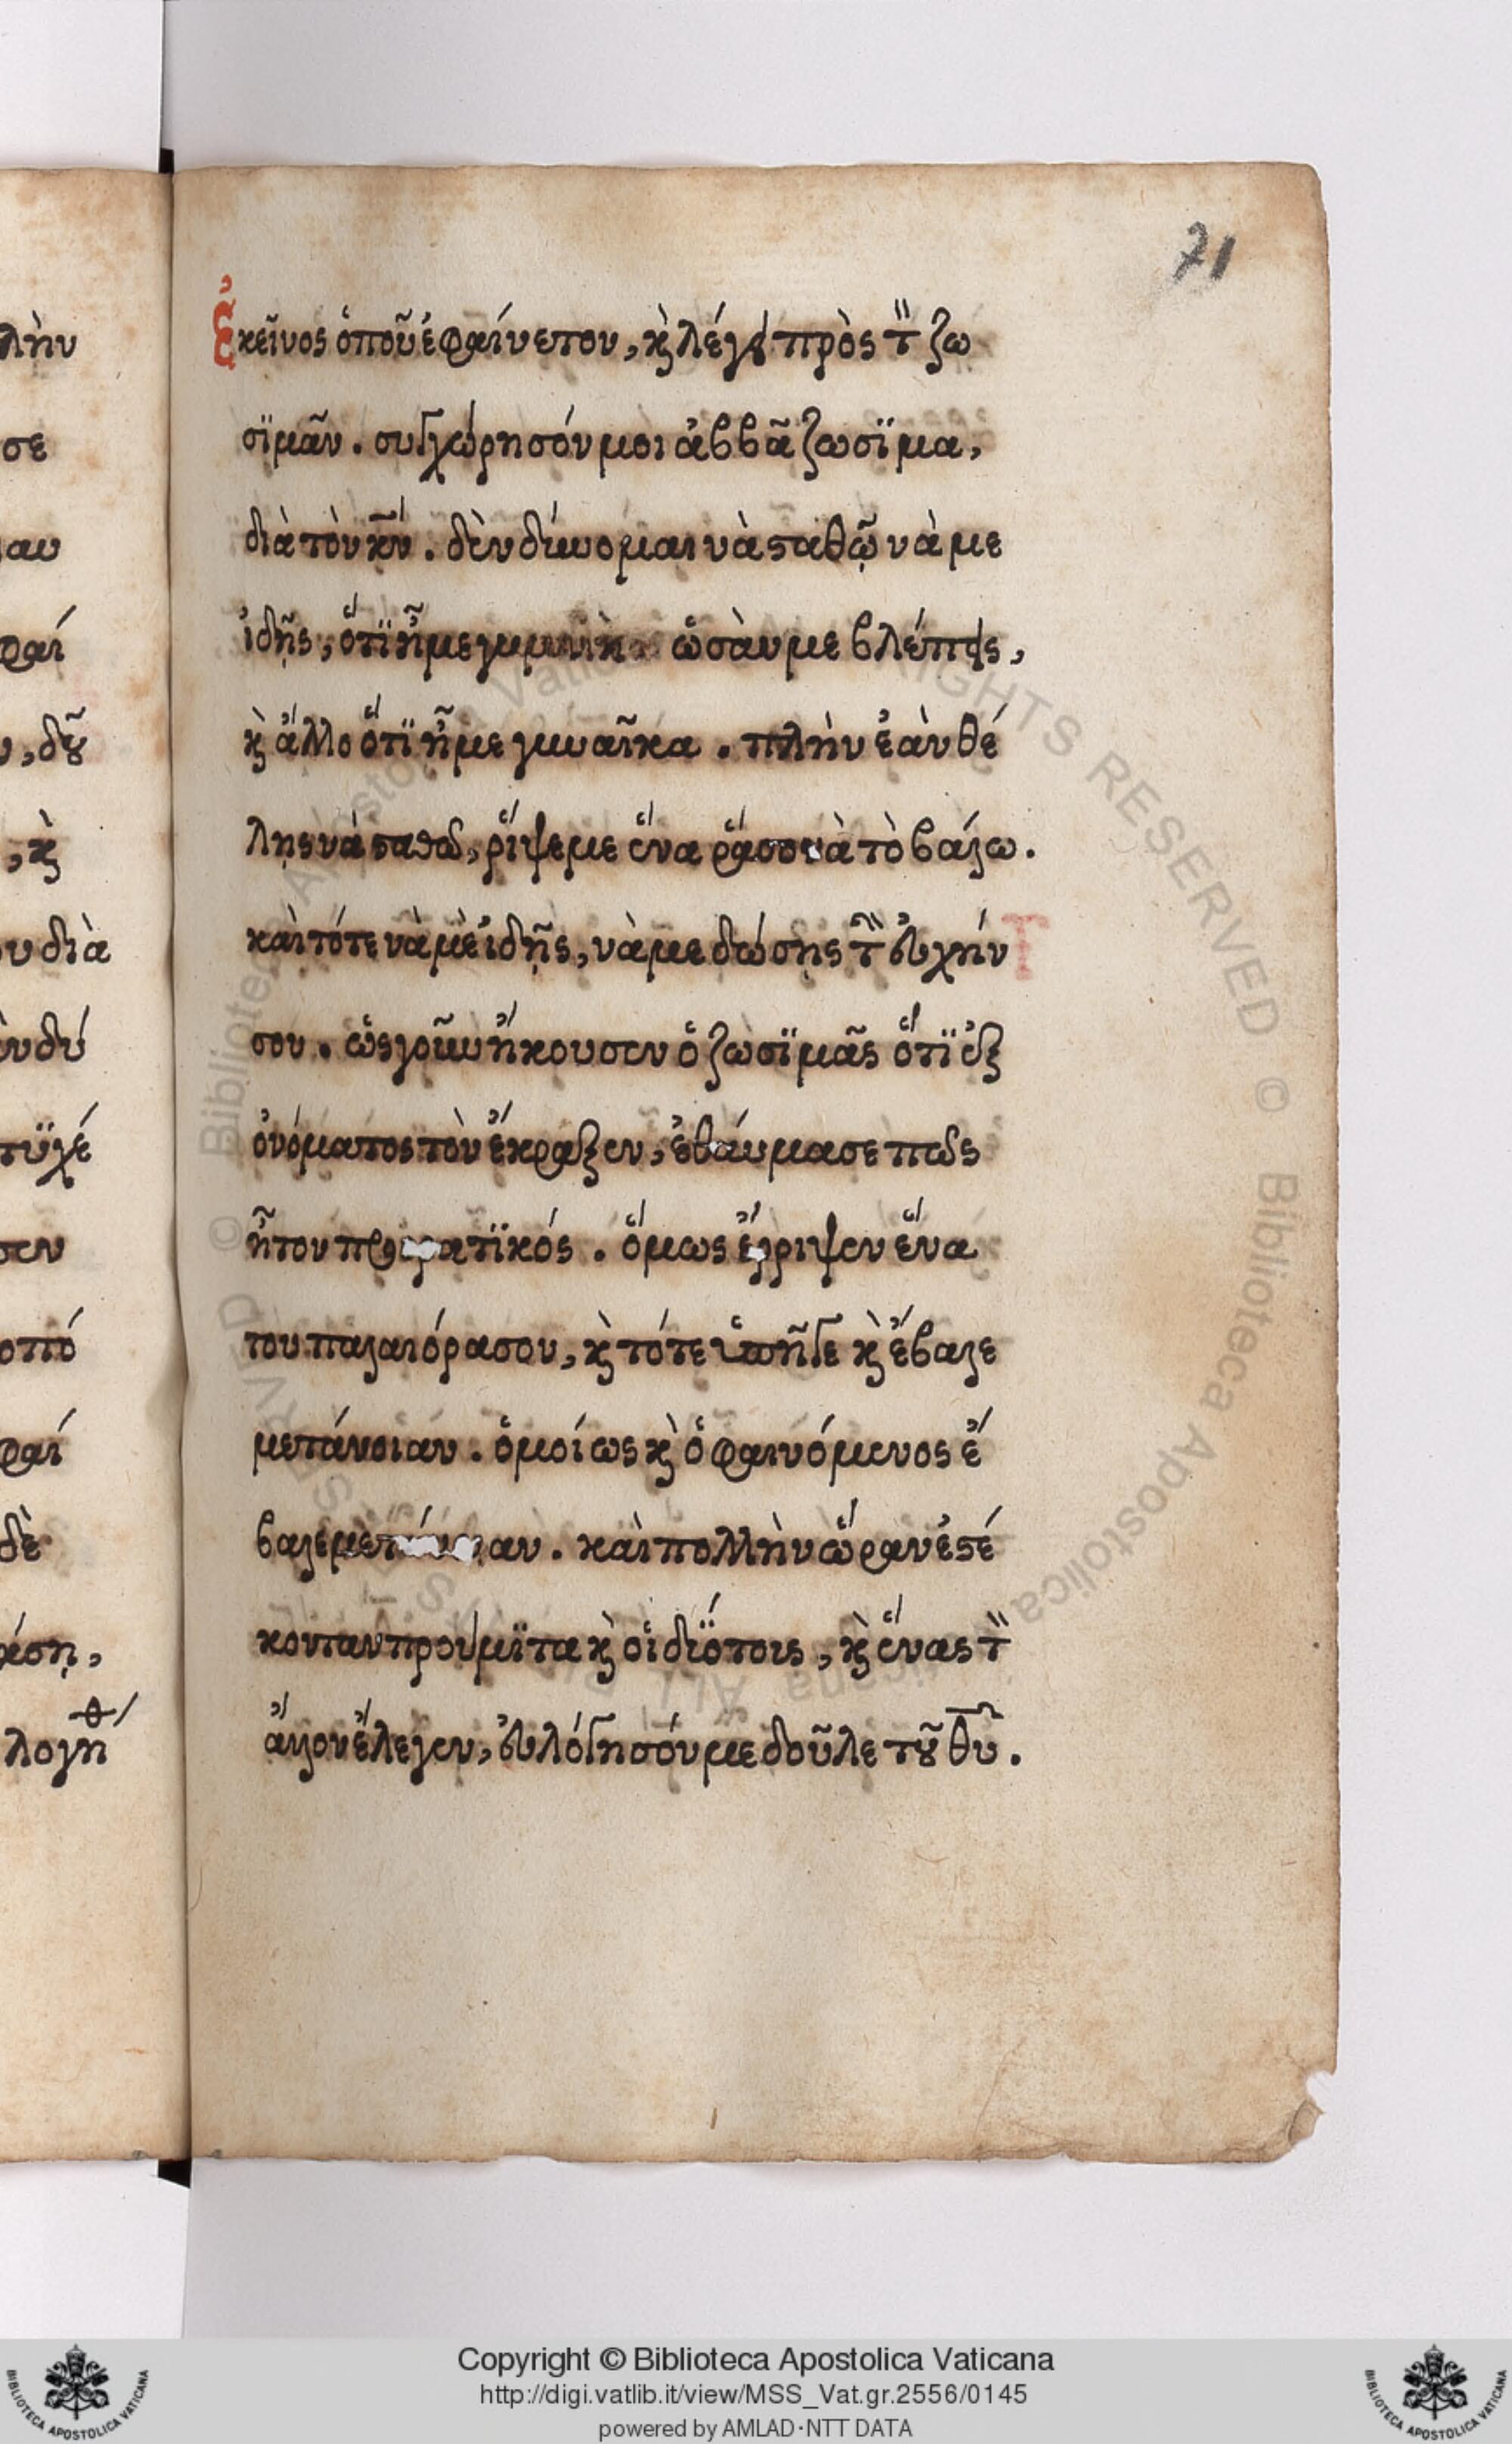 71
Ἐκεῖνος ὁποῦ ἐφαίνετον, κ̀ λέγει πρὸς τ̏ ζω
σϊμᾶν. συγχώρησόν μοι ἀββᾶ ζωσϊμα,
διὰ τὸν κν̅. δὲν δύνομαι νὰ σταθῶ νὰ με
ἰδῇς, ὅτϊ ἦμε ὡσὰν με βλέπεις,
κ̀ ἄλλο ὅτϊ ἦμε γυναῖκα. πλὴν ἐὰν θέ
λῃς νὰ σταθῶ, ῥίψε με ἕνα ῥάσο νὰ τὸ βαλω.
καὶ τότε νὰ μὲ ἰδῇς, νὰ με δώσῃς τ̏ εὐχήν
σου. ὡς γοῦν ἤκουσεν ὁ ζωσϊμᾶς ὅτϊ ἐξ
ὀνόματος τὸν ἔκραξεν, ἐθαύμασε πῶς
ἦτον . ὅμως ἔρριψεν ἕνα
του παλαιόρασον, κ̀ τότε ὑπῆγε κ̀ ἔβαλε
μετάνοιαν. ὁμοίως κ̀ ὁ φαινόμενος ἔ
βαλε . καὶ πολλὴν ὥραν ἐστέ
κονταν προύμϊτα κ̀ οἱ διϋότοις, κ̀ ἕνας τ̏
ἄλλον ἔλεγεν, εὐλόγησόν με δοῦλε τοῦ θυ̅.
λὴν
σε
αν
φαί
, δοῦ
, κ̀
υ διὰ
νδύ
τϋχέ
σεν
οπό
φαί
δὲ
άσῃ,
λογη θ
Copyright © Biblioteca Apostolica Vaticana
http://digi.vatlib.it/view/MSS_Vat.gr.2556/0145
powered by AMLAD·NTT DATA
BIBLIOTECA APOSTOLICA VATICANA
BIBLIOTECA APOSTOLICA VATICANA